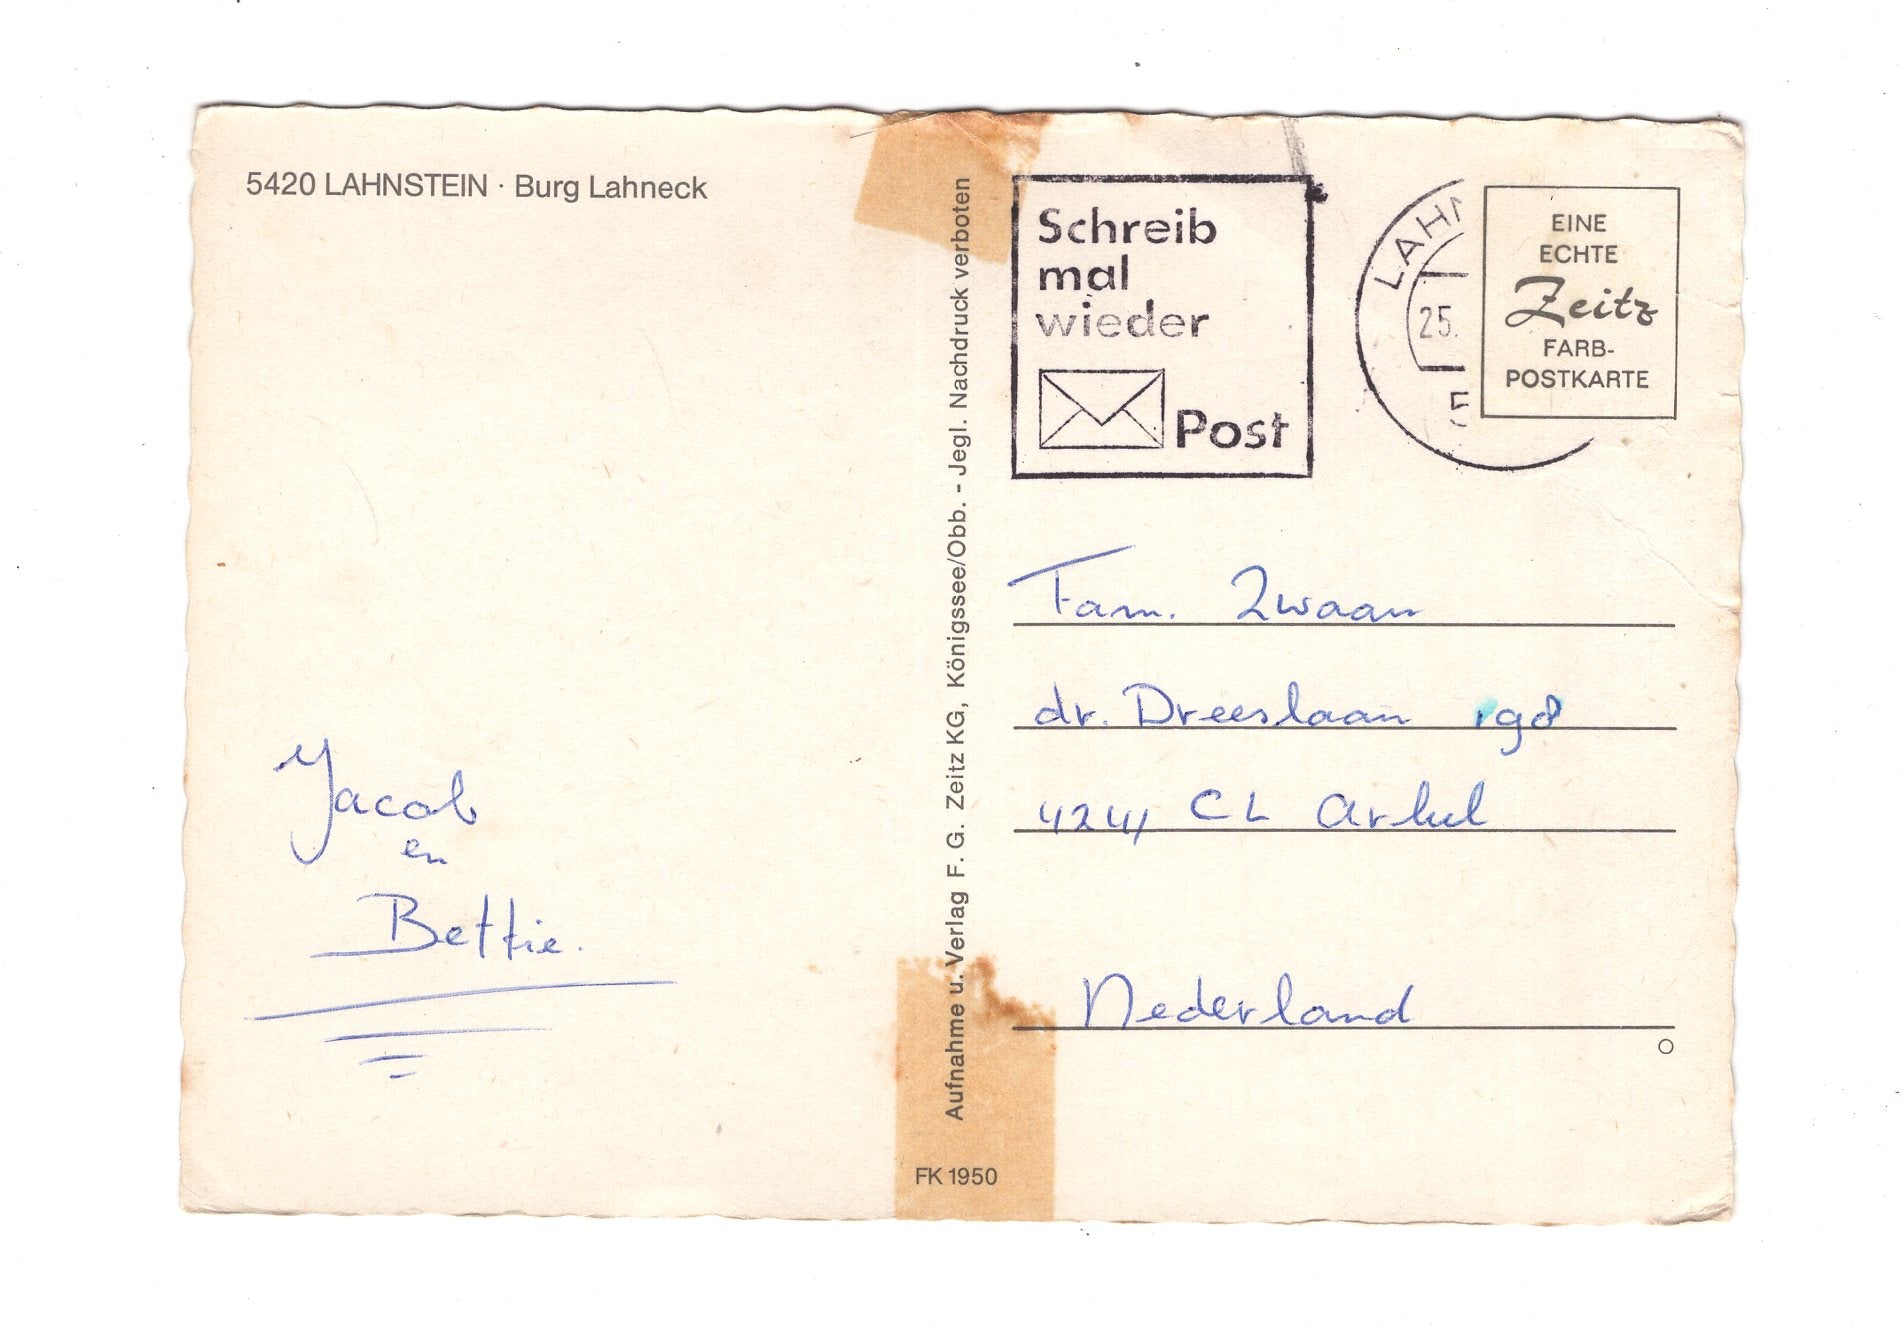 5420 LAHNSTEIN · Burg Lahneck
Jacob
en
Bettie.
Aufnahme u. Verlag F. G. Zeitz KG, Königssee/Obb. - Jegl. Nachdruck verboten
FK 1950
Schreib
mal
wieder
Post
LAHN
25.
5
EINE
ECHTE
Zeitz
FARB-
POSTKARTE
Fam. Zwaan
dr. Dreeslaan 198
4241 CL Arkel
Nederland